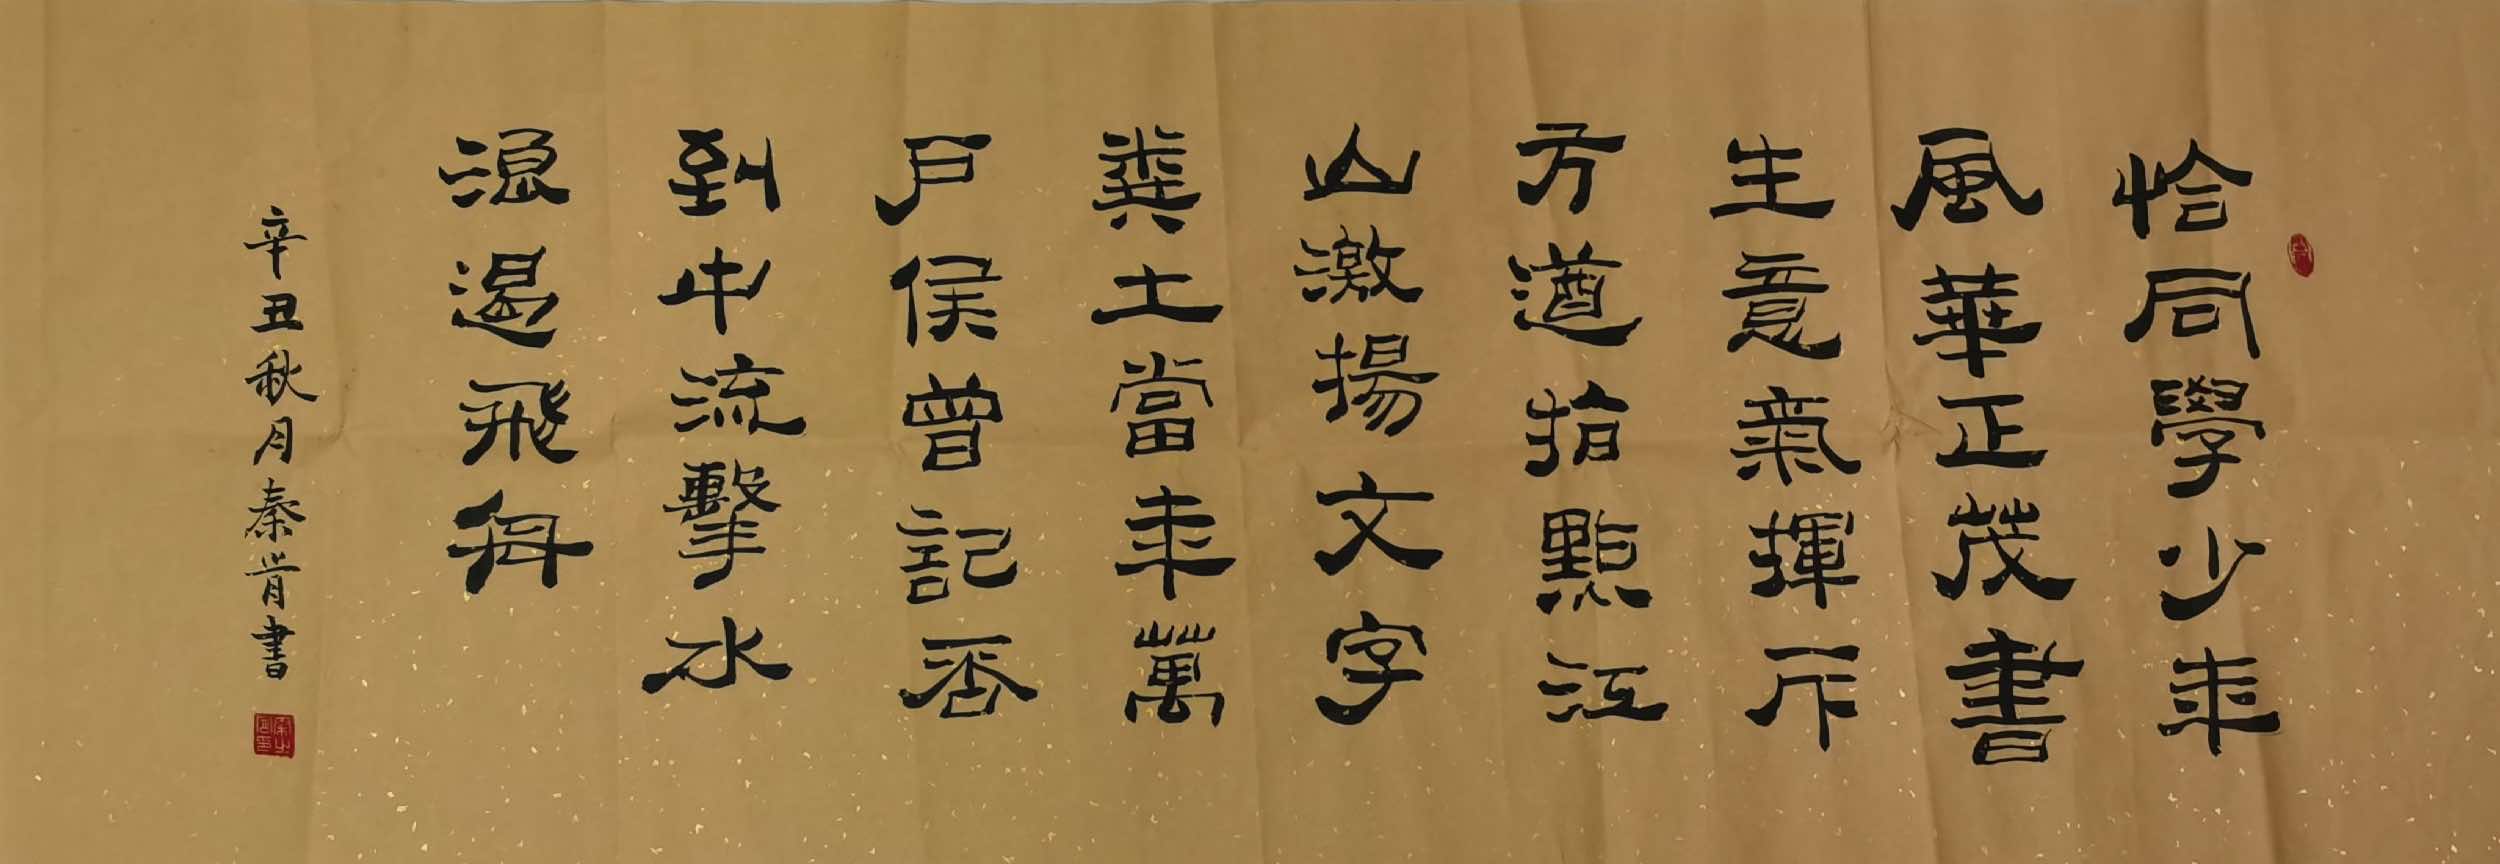 恰同學少年
風華正茂書
生意氣揮斥
方遒指點江
山激揚文字
糞土當年萬
戶侯曾記否
到中流擊水
浪遏飛舟
辛丑秋月秦肯書